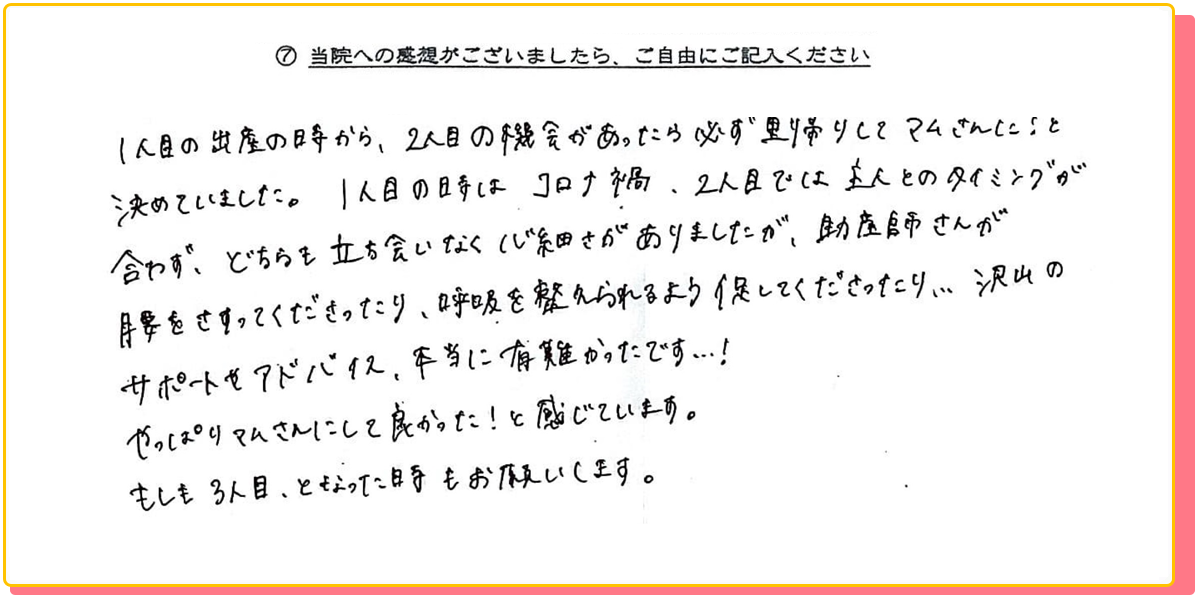 ⑦ 当院への感想がございましたら、ご自由にご記入ください
1人目の出産の時から、2人目の機会があったら必ず里帰りしてマムさんに!と
決めていました。 1人目の時はコロナ禍、2人目では主人とのタイミングが
合わず、どちらも立ち会いなく心細さがありましたが、助産師さんが
腰をさすってくださったり、呼吸を整えられるよう促してくださったり… 沢山の
サポートやアドバイス、本当に有難かったです…!
やっぱりマムさんにして良かった!と感じています。
もしも3人目、となった時もお願いします。